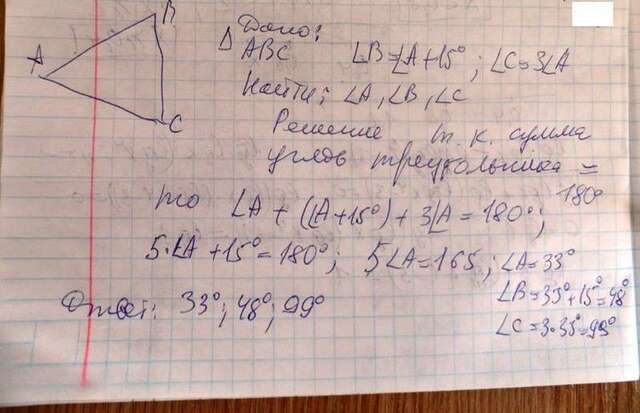 B
A
C
Дано:
Δ ABC ∠B=∠A+15°; ∠C=3∠A
Найти: ∠A, ∠B, ∠C
Решение т.к. сумма
углов треугольника = 180°
то ∠A + (∠A+15°) + 3∠A = 180°;
5·∠A + 15° = 180°; 5∠A = 165; ∠A = 33°
∠B = 33° + 15° = 48°
∠C = 3·33° = 99°
Ответ: 33°; 48°; 99°